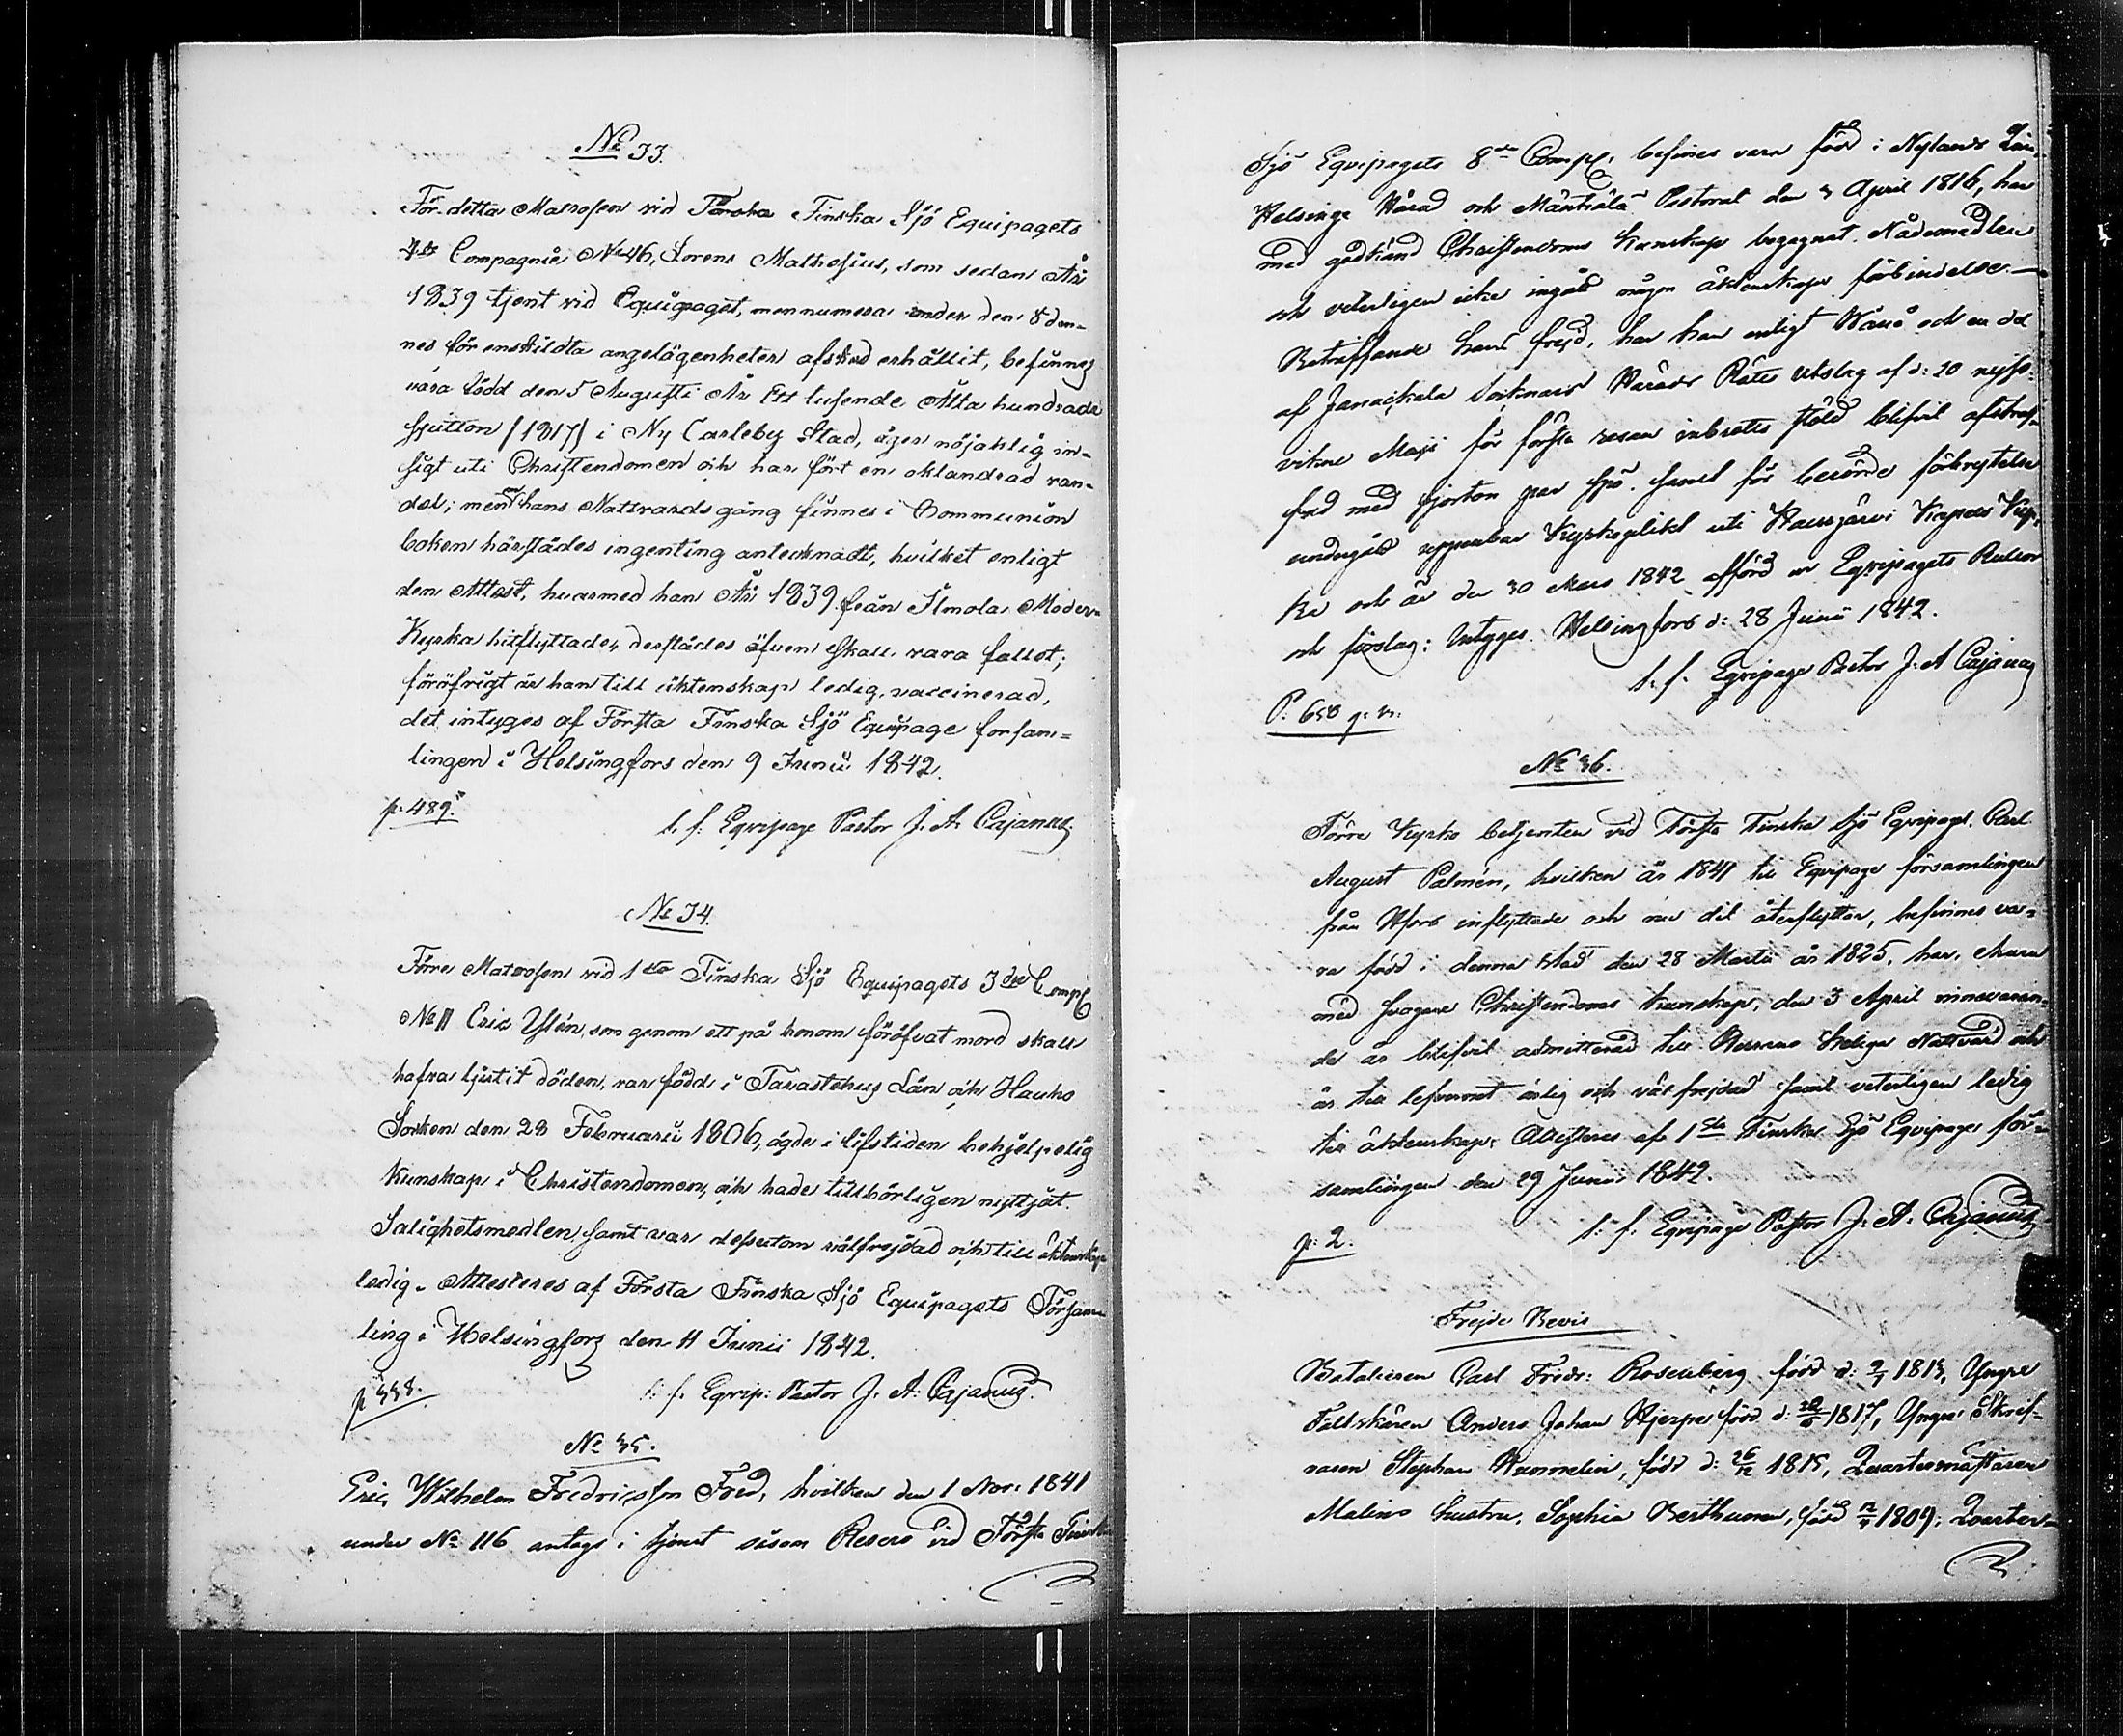 No 33.
För detta Matrosen vid Första Finska Sjö Equipagets
4de Compagnie No 46, Lorens Malhosius, som sedan År
1839 tjent vid Equipaget, men numera under den 8 den-
nes för enskildta angelägenheter afsked erhållit, befinnes
vara född den 5 Augusti År Ett tusende Åtta hundrade
sjutton (1817) i Ny Carleby Stad, äger nöjaktig in-
sigt uti Christendomen och har fört en oklandrad van-
del; men om hans Nattvardsgång finnes i Communion
boken härstädes ingenting antecknadt, hvilket enligt
den Attest, hvarmed han År 1839 från Ilmola Moder-
Kyrka hitflyttade, derstädes äfven skall vara fallet;
föröfrigt är han till äktenskap ledig, vaccinerad,
det intyges af Första Finska Sjö Equipage forsam=
lingen i Helsingfors den 9 Junii 1842.
p. 489.
t. f. Eqvipage Pastor J. A. Cajanus
No 34.
Förre Matrosen vid 1sta Finska Sjö Equipagets 3dje Comp
No 11 Eric Ylén, som genom ett på honom föröfvat mord skall
hafva ljutit döden, var född i Tavastehus Län och Hauho
Socken den 28 Februarii 1806, ägde i lifstiden behjelpelig
Kunskap i Christendomen, och hade tillbörligen nyttjat
Salighetsmedlen samt var dessutom välfrejdad och till äktenskap
ledig. Attesteres af Första Finska Sjö Equipagets Församm
ling i Helsingfors den 11 Junii 1842.
p 338.
t. f. Eqvip: Pastor J. A: Cajanus.
No 35.
Eric Wilhelm Fredricsson Ford, hvilken den 1 Nov: 1841
under No 116 antogs i tjenst såsom Reserv vid Första Finska
Sjö Eqvipagets 8de Comp, befines vara född i Nylands Län,
Helsinge Härad och Mäntsälä Pastorat den 3 April 1816, har
med godkänd Christendoms kunskap begagnat Nådemedlen
och veterligen icke ingått någon äktenskaps förbindelse.—
Beträffande hans frejd, har han enligt Wånå och en del
af Janackala Socknars Härads Rätts utslag af d: 20 nyss-
vikne Maji för första resan inbrotts stöld blifvit afstraf-
fad med fjorton par spö samt för berörde förbrytelse
undergått uppenbar Kyrkoplikt uti Hausjärvi Kapells Kyr-
ka och är den 30 Mars 1842 afförd ur Eqvipagets Rullor
och förslag: Intyges. Helsingfors d: 28 Junii 1842.
t. f. Eqvipage Pastor J. A Cajanus
P. 658 q. v.
No 36.
Förre Kyrko betjenten vid Första Finska Sjö Eqvipaget Carl
August Palmén, hvilken år 1841 till Eqvipage församlingen
från Hfors inflyttade och nu dit återflyttar, befinnes va-
ra född i denna stad den 28 Martii år 1825, har, ehuru
med svagare Christendoms kunskap, den 3 April innevaran-
de år blifvit admitterad till Herrans Heliga Nattvard och
är till lefvernet ärlig och väl frejdad samt veterligen ledig
till äktenskap; Attesteras af 1sta Finska Sjö Eqvipage för-
samlingen den 29 Junii 1842.
t. f. Eqvipage Pastor J. A. Cajanus
p: 2.
Frejde Bevis
Bataliren Carl Fredr: Rosenberg född d: 1813, Yngre
Fältskären Anders Johan Hjerpe född d: 1817, Yngre Skrif-
varen Stephan Hummelin, född d: 26/12 1815, Quartersmästaren
Malins hustru, Sophia Berthuman, född 1809; Quarters-